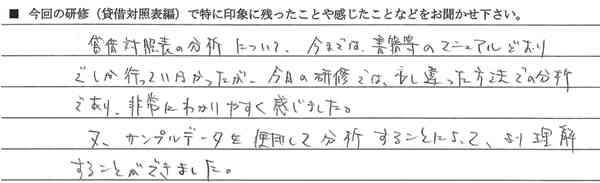 ■ 今回の研修（貸借対照表編）で特に印象に残ったことや感じたことなどをお聞かせ下さい。
貸借対照表の分析について、今までは、書籍等のマニュアルどおり
でしか行っていなかったが、今日の研修では、少し違った方法での分析
であり、非常にわかりやすく感じました。
又、サンプルデータを使用して分析することによって、より理解
することができました。